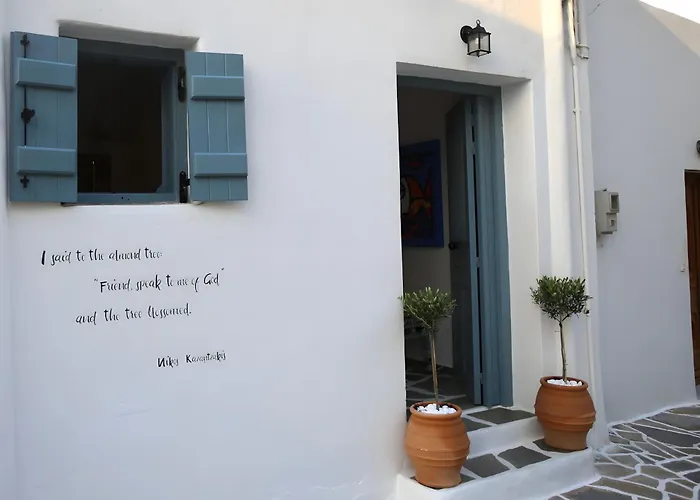 I said to the almond tree:
"Friend, speak to me of God"
and the tree blossomed.
Nikos Kazantzakis